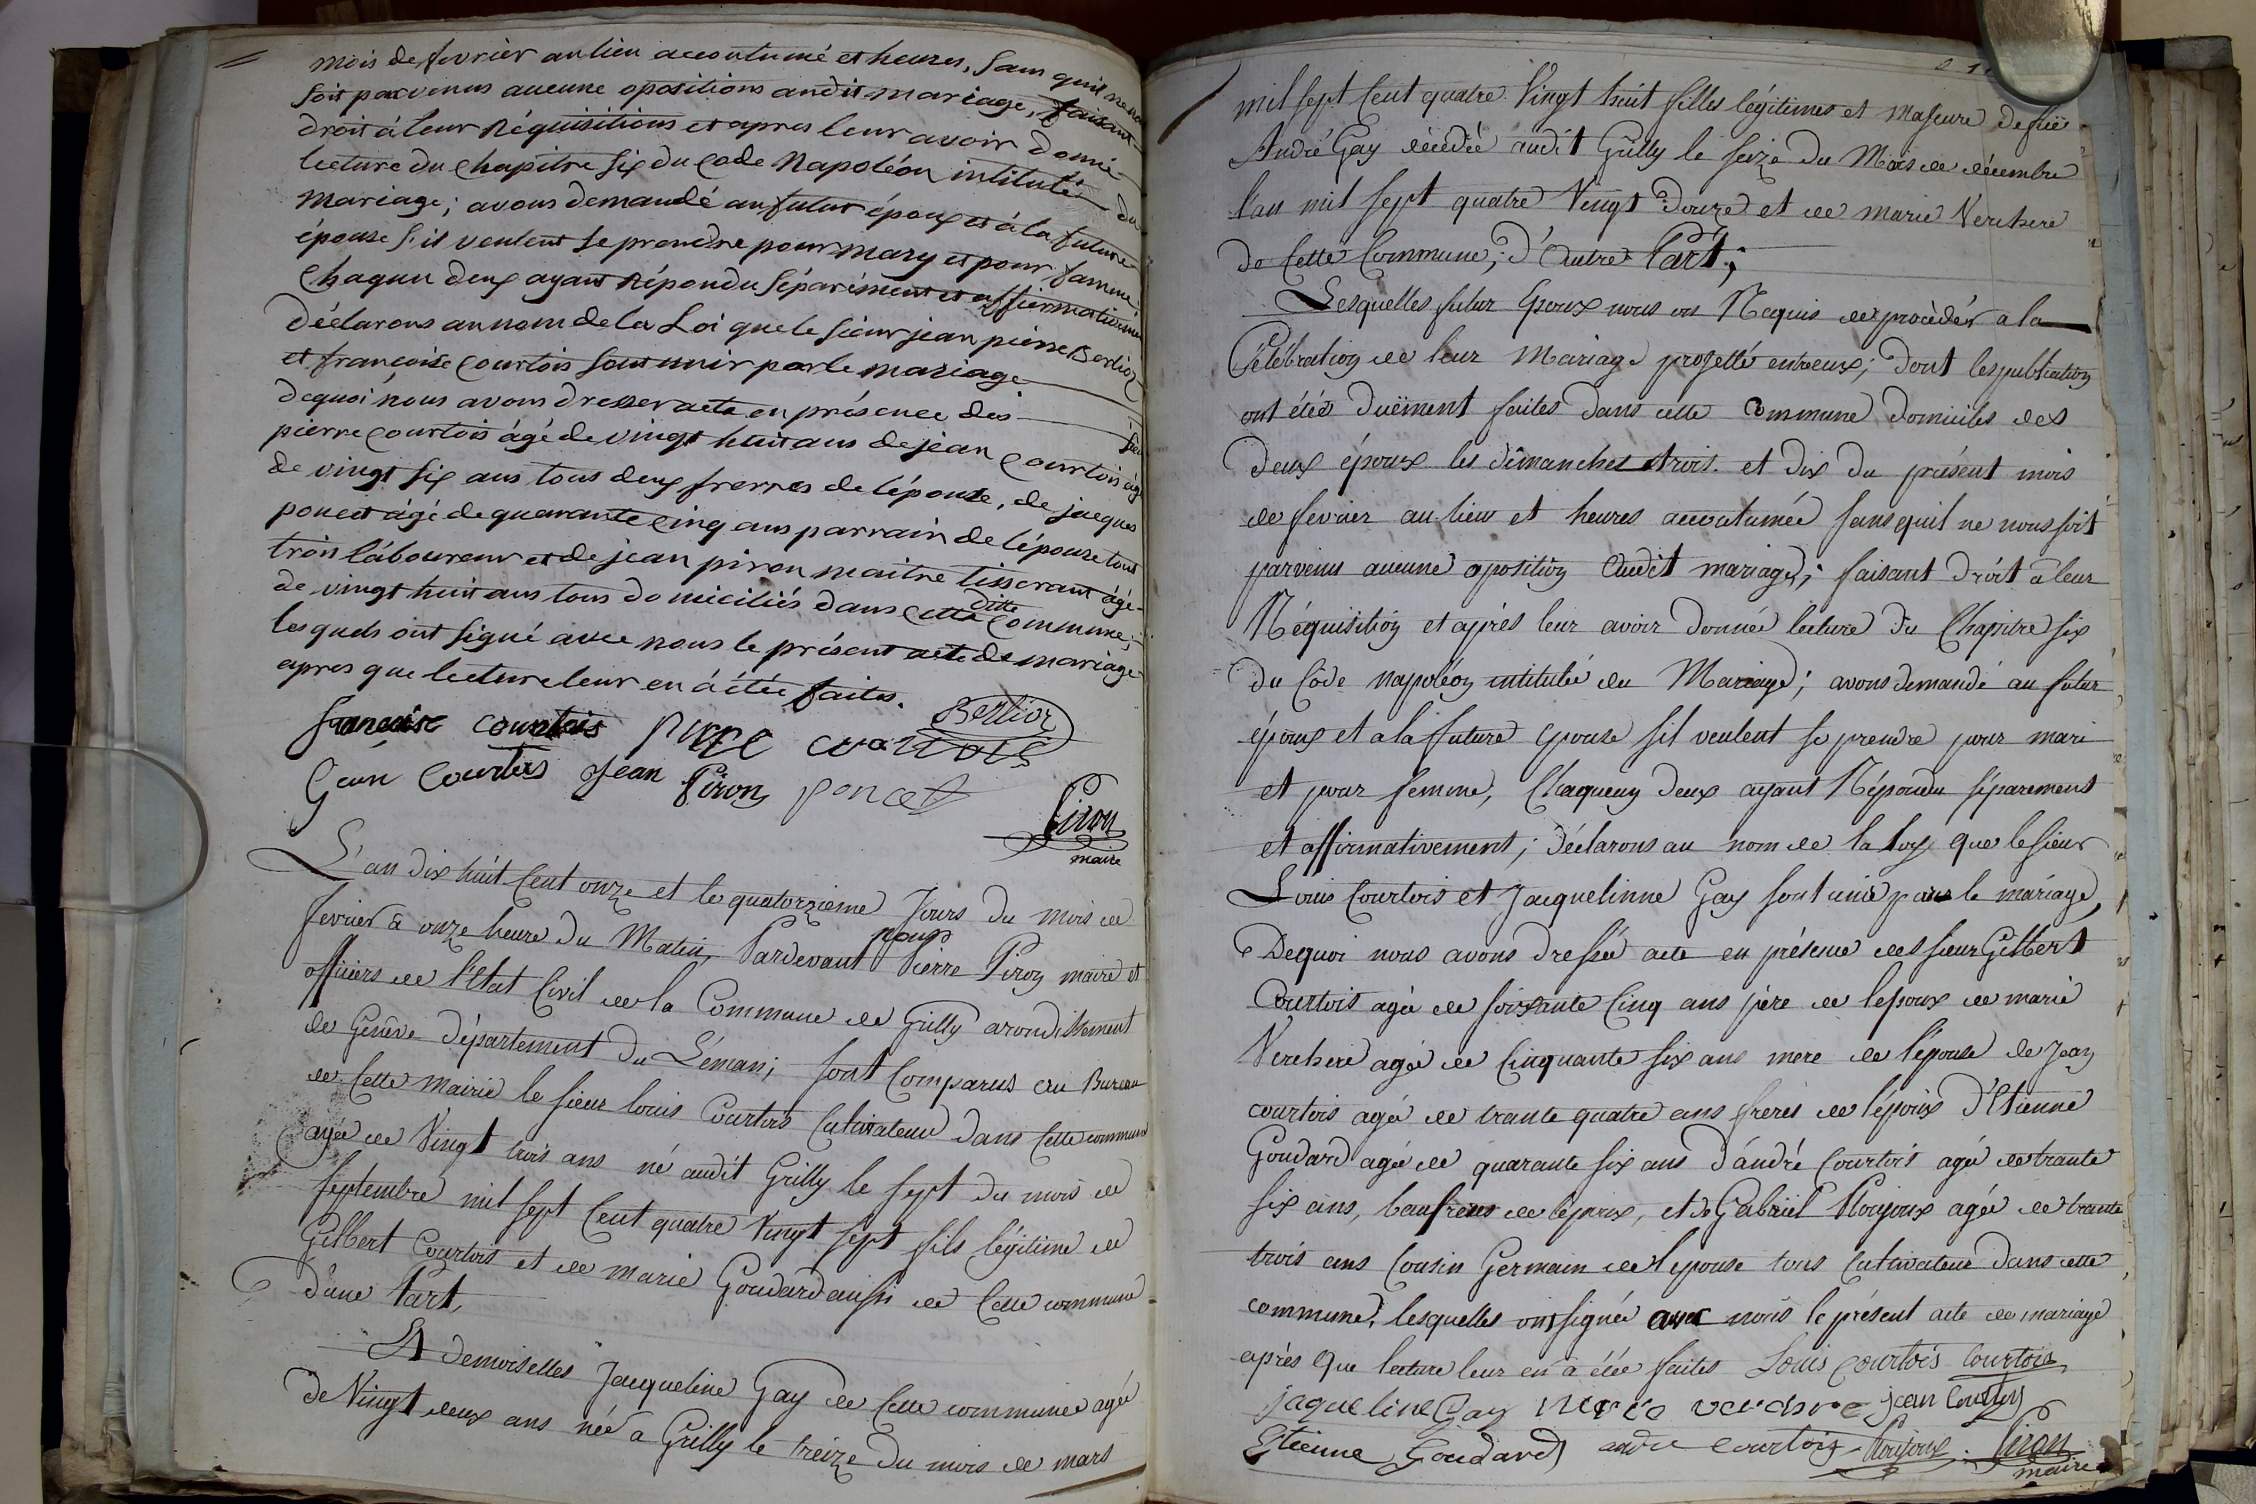 mois de fevrier au lieu accoutumé et heures, sans quil ne nous
soit parvenus aucune opositions audit mariage, faisant
droit à leur Réquisitions et apres leur avoir donné
lecture du chapitre six du code Napoléon intitulé du
mariage; avons demandé au futur époux et à la future
épouse s'il veulent se prendre pour mary et pour famme
chaqun deux ayant Répondu séparément et affirmativement
déclarons au nom de la Loi que le sieur jean pierre Berlioz
et françoise courtois sont unir par le mariage
dequoi nous avons dresser acte en présence des
pierre courtois âgé de vingt huit ans de jean courtois âgé
de vingt six ans tous deux freres de lépouse, de jacques
poncet âgé de quarante cinq ans parrain de lépouse tous
trois láboureur et de jean piron maitre tisserant âgé
de vingt huit ans tous domiciliés dans cette ditte commune;
lesquels ont signé avec nous le présent acte de mariage
apres que lecture leur en á étée faites.
françoise courtois pierre courtois Berlioz
Jean Courtois Jean Piron poncet
Piron
maire
L'an dix huit Cent onze et le quatorzieme Jours du mois de
fevrier à onze heure du Matin, Pardevant nous Pierre Piron maire et
officiers de l'Etat Civil de la Commune de Grilly arondissement
de Genêve Département du Léman; sont Comparus au Bureau
de Cette Mairie le sieur louis Courtois Cultivateur dans Cette commune
agée de Vingt trois ans né audit Grilly le sept du mois de
septembre mil sept Cent quatre Vingt sept fils légitime de
Gilbert Courtois et de marie Goudard aussi de Cette commune
d'une Part,
Et demoiselles Jacqueline Gay de Cette commune agée
de Vingt deux ans née a Grilly le treize du mois de mars
mil sept Cent quatre Vingt huit filles légitimes et majeure de feü
André Gay décédé audit Grilly le seize du Mois de décembre
l'an mil sept quatre Vingt douze et de marie Verchere
de Cette Commune, d'Autre Part;
Lesquelles futur Epoux nous on Requis de procéder a la
Célébration de leur Mariage projetté entreeux; dont les publication
ont étée duëment faites dans cette commune domiciles des
deux époux les dimanches trois et dix du présent mois
de fevrier au lieu et heures accoutumée sans quil ne nous soit
parvenus aucune oposition Audit mariage; faisant droit a leur
Réquisition et aprés leur avoir donnée lecture du Chapitre six
du Code Napoléon intitulée du Mariage; avons demandé au futur
époux et a la future epouse sil veulent se prendre pour mari
et pour femme, Chaqueun deux ayant Répondu séparement
et affirmativement; déclarons au nom de la Loy que le sieur
Louis Courtois et Jacquelinne Gay sont unis par le mariage,
Dequoi nous avons dressée acte en présence des sieur Gilbert
Courtois agée de soixante Cinq ans père de lepoux de marie
Verchere agée de Cinquante six ans mere de l'épouse de Jean
courtois agée de trante quatre ans freres de l'époux d'Etienne
Goudard agée de quarante six ans d'andré Courtois agée de trante
six ans, beaufreres de lepoux, et de Gabriël Roujoux agée de trante
trois ans Cousin Germain de lepouse tous Cultivateur dans cette
commune, lesquelles on signée avec nous le présent acte de mariage
après Que lecture leur en à étée faites Louis Courtois Courtois
jaqueline Gay Marie verchere jean Courtois
Etienne Goudard andre Courtois Roujoux Piron
maire